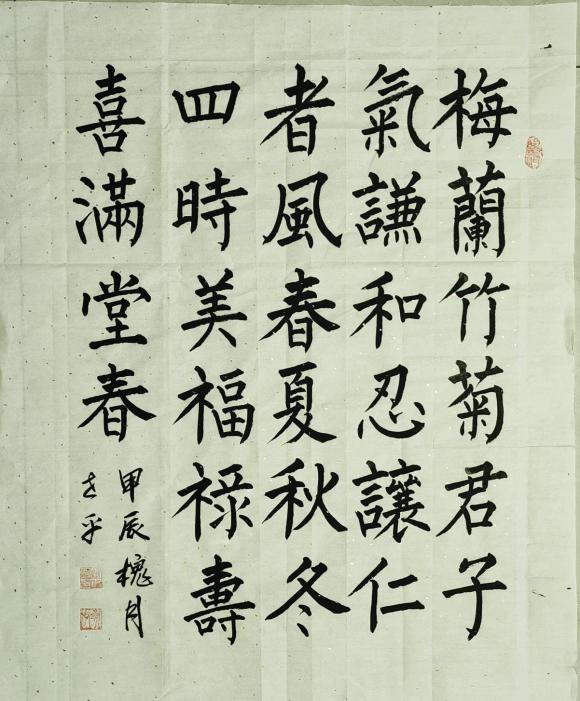 梅蘭竹菊君子
氣謙和忍讓仁
者風春夏秋冬
四時美福祿壽
喜滿堂春
甲辰槐月
志平